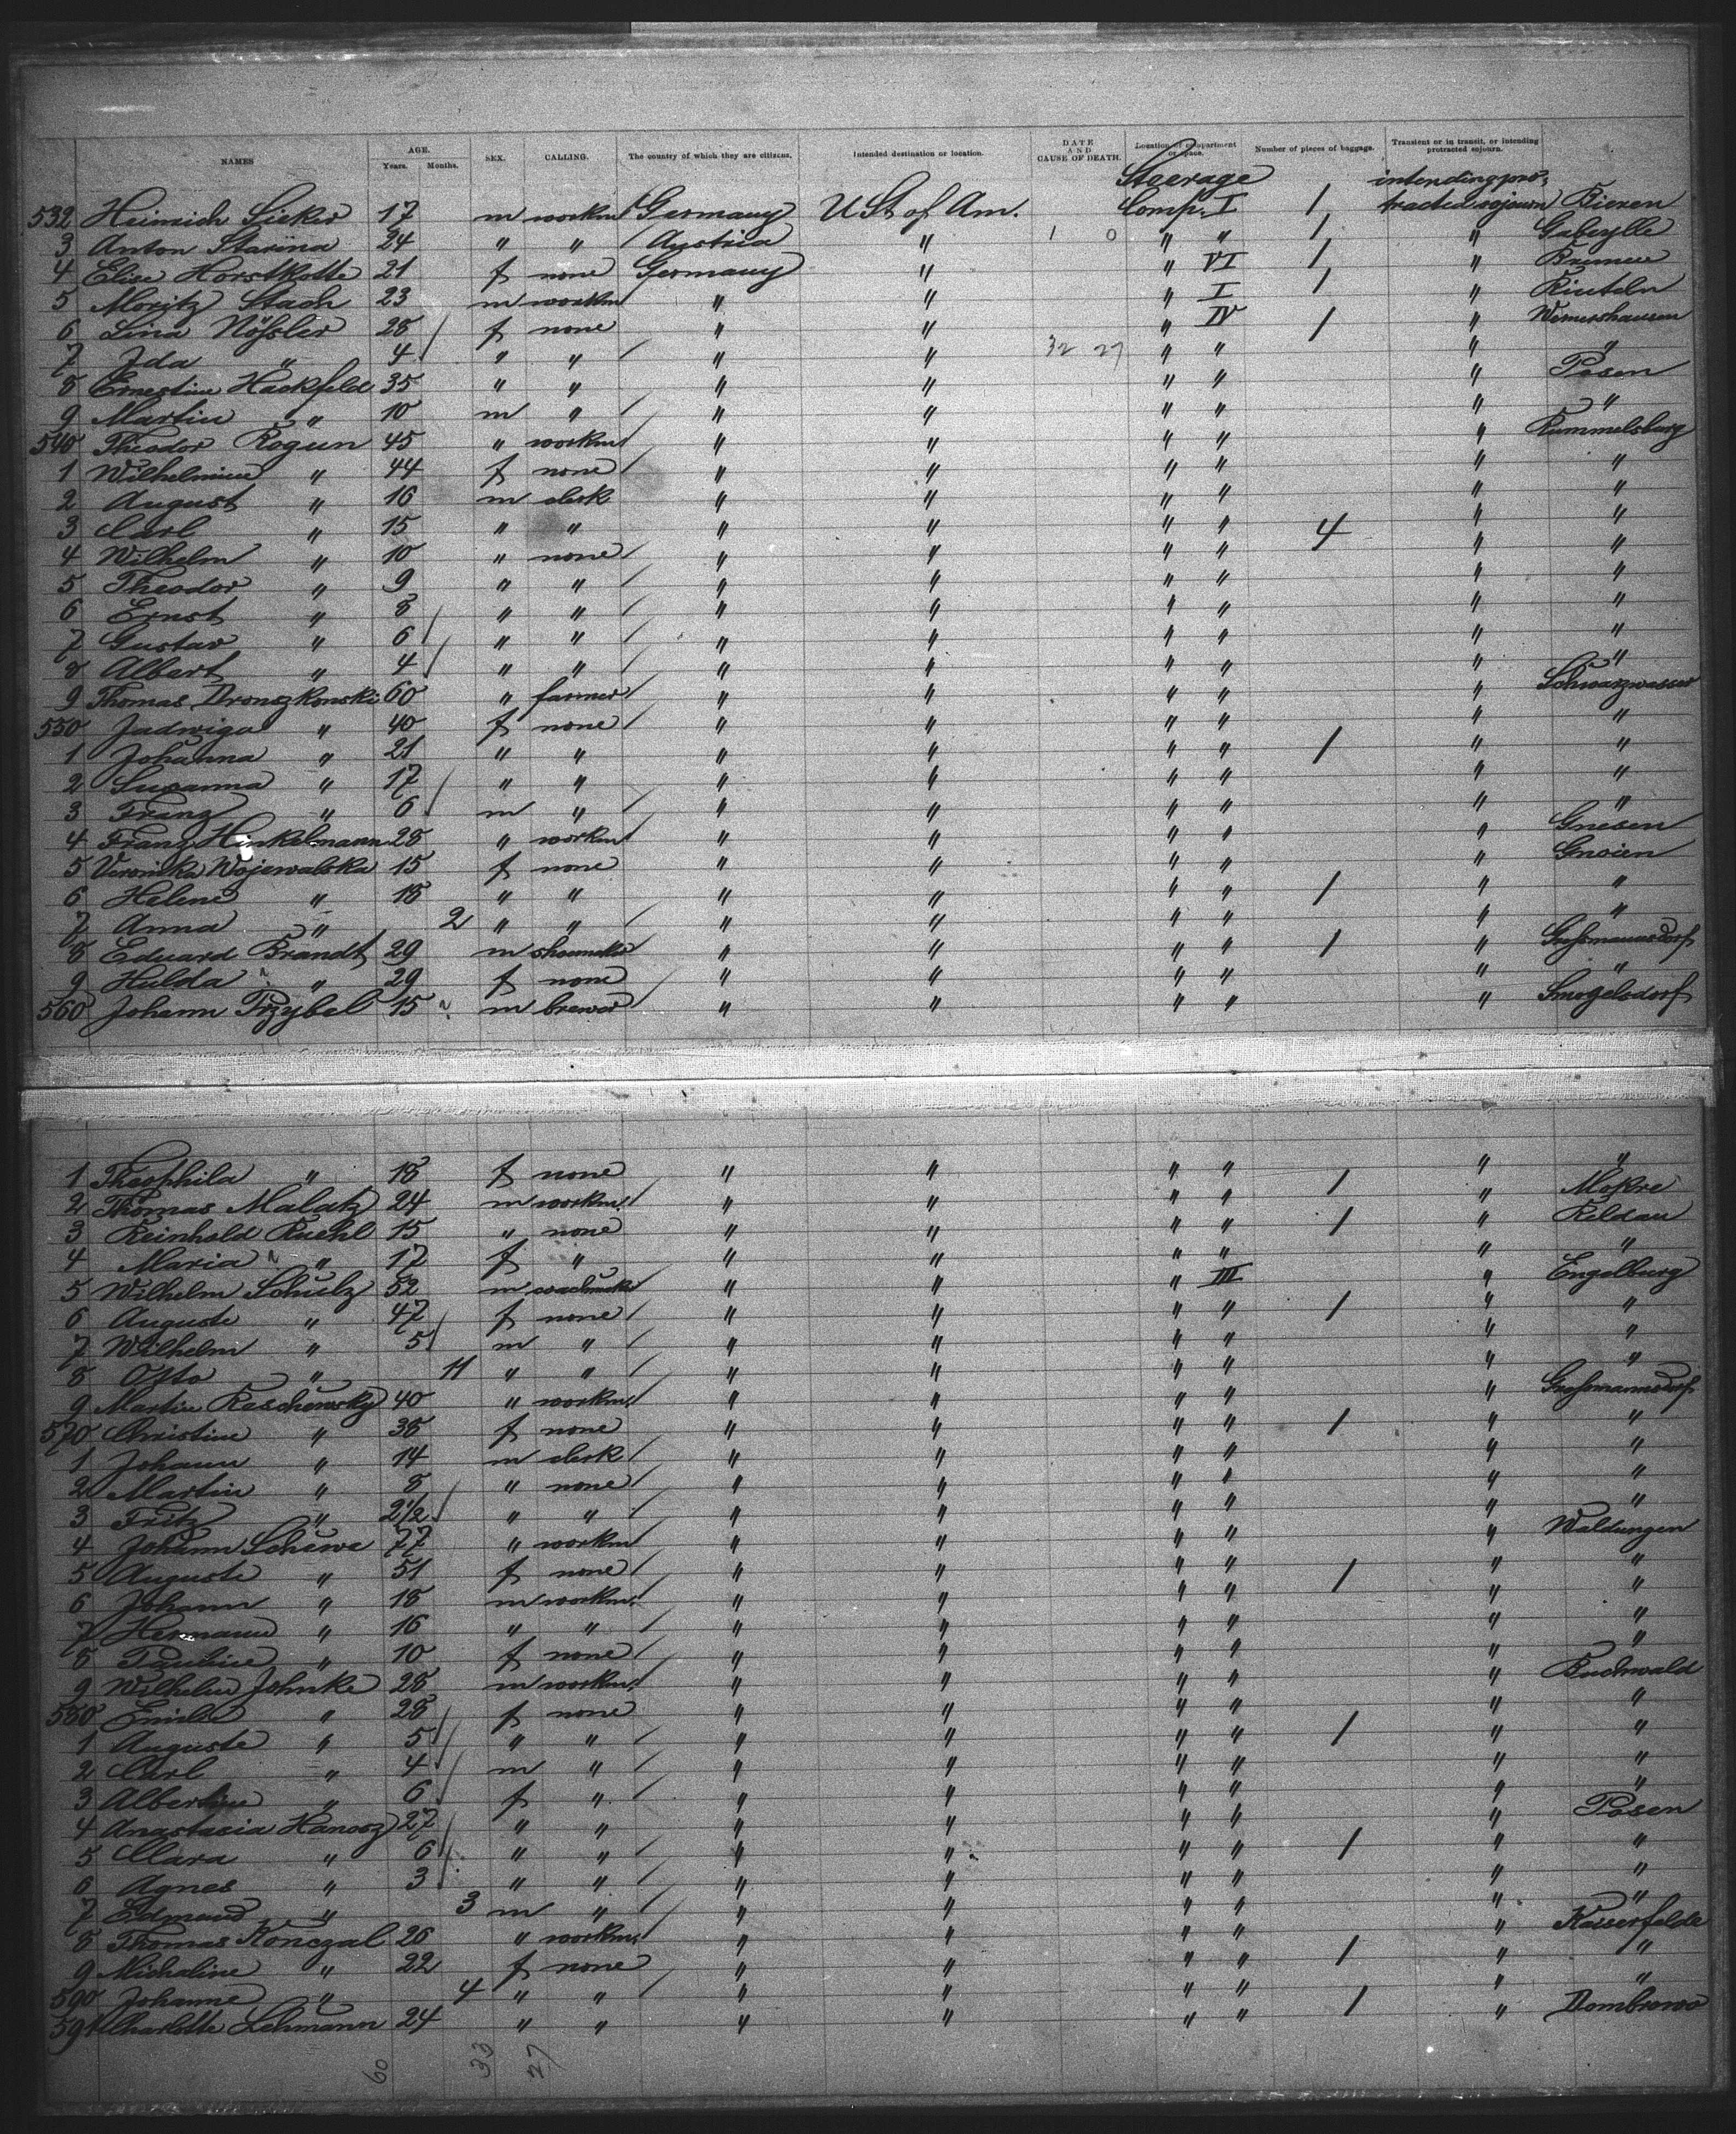 NAMES AGE. Years. Months. SEX. CALLING. The country of which they are citizens. Intended destination or location. DATE AND CAUSE OF DEATH. Location of compartment or space. Number of pieces of baggage. Transient or in transit, or intending protracted sojourn.
Steerage intending pro-
532 Heinrich Sieker 17 m workm Germany U St of Am. Comp. I 1 tracted sojourn Bieren
3 Anton Starina 24 " " Austria " 1 0 " " 1 " Gabeylle
4 Elise Horstkotte 21 f none Germany " " VI 1 " Bremen
5 Moritz Stach 23 m workm " " " I 1 " Rinteln
6 Lina Nößler 28 f none " " " IV 1 " Wernershausen
7 Ida " 4 " " " " 32 27 " " " "
8 Ernestine Hackfeld 35 " " " " " " " Posen
9 Martin " 10 m " " " " " " "
540 Theodor Rogun 45 " workm " " " " " Rummelsburg
1 Wilhelmine " 44 f none " " " " " "
2 August " 16 m clerk " " " " " "
3 Carl " 15 " " " " " " 4 " "
4 Wilhelm " 10 " none " " " " " "
5 Theodor " 9 " " " " " " " "
6 Ernst " 8 " " " " " " " "
7 Gustav " 6 " " " " " " " "
8 Albert " 4 " " " " " " " "
9 Thomas Dronszkonski 60 " farmer " " " " " Schwarzwasser
550 Jadwiga " 40 f none " " " " " "
1 Johanna " 21 " " " " " " 1 " "
2 Susanna " 17 " " " " " " " "
3 Franz " 6 m " " " " " " "
4 Franz Hinkelmann 28 " workm " " " " " Gnesen
5 Veronika Wojewalska 15 f none " " " " " Gnoien
6 Helene " 18 " " " " " " 1 " "
7 Anna " 2 " " " " " " " "
8 Eduard Brandt 29 m shoemaker " " " " 1 " Großmannsdorf
9 Hulda " 29 f none " " " " " "
560 Johann Przybel 15 m brewer " " " " " Smogelsdorf
1 Theophila " 18 f none " " " " 1 " "
2 Thomas Malak 24 m workm. " " " " " Mokre
3 Reinhold Ruehl 15 " none " " " " 1 " Reldau
4 Maria " 17 f " " " " " " "
5 Wilhelm Schulz 52 m " " " III " Engelburg
6 Auguste " 47 f none " " " " 1 " "
7 Wilhelm " 5 m " " " " " " "
8 Otto " 11 " " " " " " " "
9 Martin Raschewsky 40 " workm. " " " " " Großmannsdorf
570 Christine " 38 f none " " " " 1 " "
1 Johann " 14 m clerk " " " " " "
2 Martin " 8 " none " " " " " "
3 Fritz " 2 1/2 " " " " " " " "
4 Johann Schewe 77 " workm " " " " " Waldungen
5 Auguste " 51 f none " " " " 1 " "
6 Johann " 18 m workm. " " " " " "
7 Hermann " 16 " " " " " " " "
8 Pauline " 10 f none " " " " " "
9 Wilhelm Johnke 28 m workm. " " " " " Buchwald
580 Emilie " 28 f none " " " " " "
1 Auguste " 5 " " " " " " 1 " "
2 Carl " 4 m " " " " " " "
3 Albertine " 6 f " " " " " " "
4 Anastasia Hanosz 27 " " " " " " " Posen
5 Clara " 6 " " " " " " 1 " "
6 Agnes " 3 " " " " " " " "
7 Edmund " 3 m " " " " " " "
8 Thomas Konczal 26 " workm. " " " " " Kaiserfelde
9 Michaline " 22 f none " " " " 1 " "
590 Johanne " 4 " " " " " " " "
591 Charlotte Lehmann 24 " " " " " " 1 " Dombrowo
60 33 27